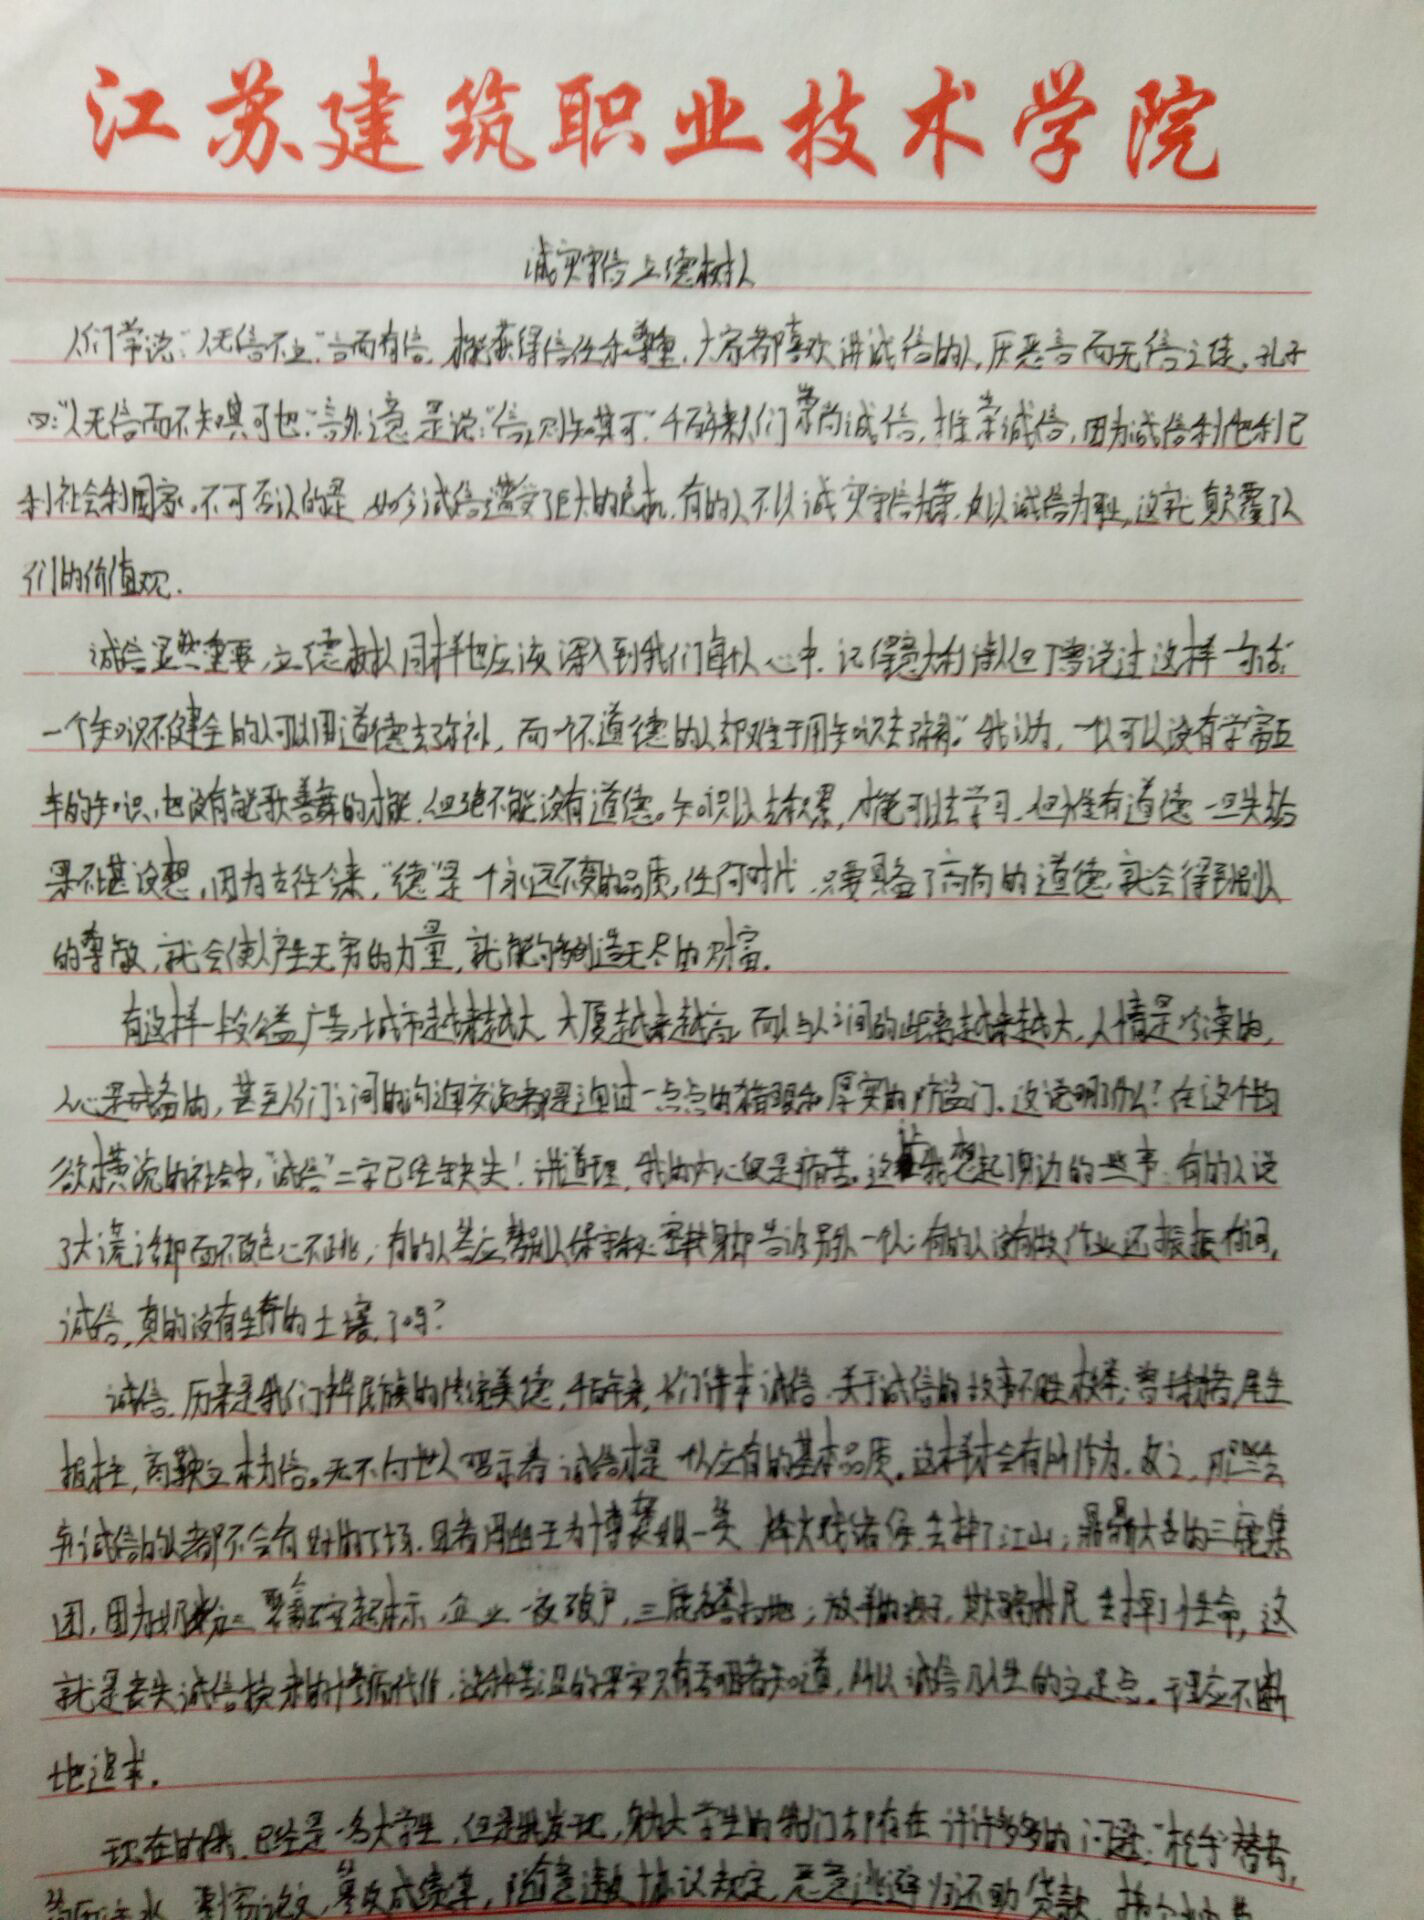 江苏建筑职业技术学院
诚实守信 立德树人
人们常说:“人无信不立。”言而有信,才能获得信任和尊重,大家都喜欢讲诚信的人,厌恶言而无信之徒。孔子
曰:“人无信而不知其可也”言外之意是说:“信,则知其可”千百年来人们崇尚诚信,推崇诚信,因为诚信利他利己
利社会利国家。不可否认的是,如今诚信遭受了巨大的危机,有的人不以诚实守信为荣,反以诚信为耻,这完颠覆了人
们的价值观.
诚信显然重要,立德树人同样也应该深入到我们每个人心中.记得意大利诗人但丁曾说过这样一句话“
一个知识不健全的人可以用道德去弥补,而一个不道德的人却难于用知识去弥补。”我认为,一个人可以没有学富五
车的知识,也没有能歌善舞的才能,但绝不能没有道德。知识可以去积累,才能可以去学习,但惟有道德一旦失去后
果不堪设想,因为古往今来,“德”是一个永远不变的品质,任何时代,只要具备了高尚的道德,就会得到别人
的尊敬,就会使人产生无穷的力量,就能够创造无尽的财富.
有这样一段公益广告,城市越来越大,大厦越来越高,而人与人之间的距离越来越大,人情是冷漠的,
人心是戒备的,甚至人们之间的沟通交流都是通过一点点的猫眼和厚实的防盗门。这说明了什么?在这个物
欲横流的社会中,“诚信”二字已经缺失!讲道理,我的内心很是痛苦。这让我想起了身边的一些事:有的人说
了大谎话却面不改色心不跳;有的人答应替别人保守秘密转身却告诉另外一个人;有的人没有做作业还振振有词,
诚信,真的没有生存的土壤了吗?
诚信,历来是我们中华民族的传统美德,千百年来,人们讲求诚信,关于诚信的故事不胜枚举;曾子杀猪,尾生
抱柱,商鞅立木为信。无不向世人昭示着诚信才是一个人应有的基本品质。这样才会有所作为.反之,那些舍
弃诚信的人都不会有好的下场.且看周幽王为博褒姒一笑 烽火戏诸侯,丢掉了江山;鼎鼎大名的三鹿集
团,因为奶粉 聚氰胺超标,企业一夜破产,三鹿名誉扫地;放羊的孩子,欺骗村民,丢掉了性命,这
就是丧失诚信换来的惨痛代价,这种苦涩的果实只有吞咽者知道,所以诚信乃人生的立足点,于理应不断
地追求.
现在的我,已经是一名大学生,但是我发现,身为大学生的我们却存在许许多多的问题:“枪手”替考,
简历注水,剽窃论文,篡改成绩单,随意违反协议规定,恶意逃避归还助贷款,